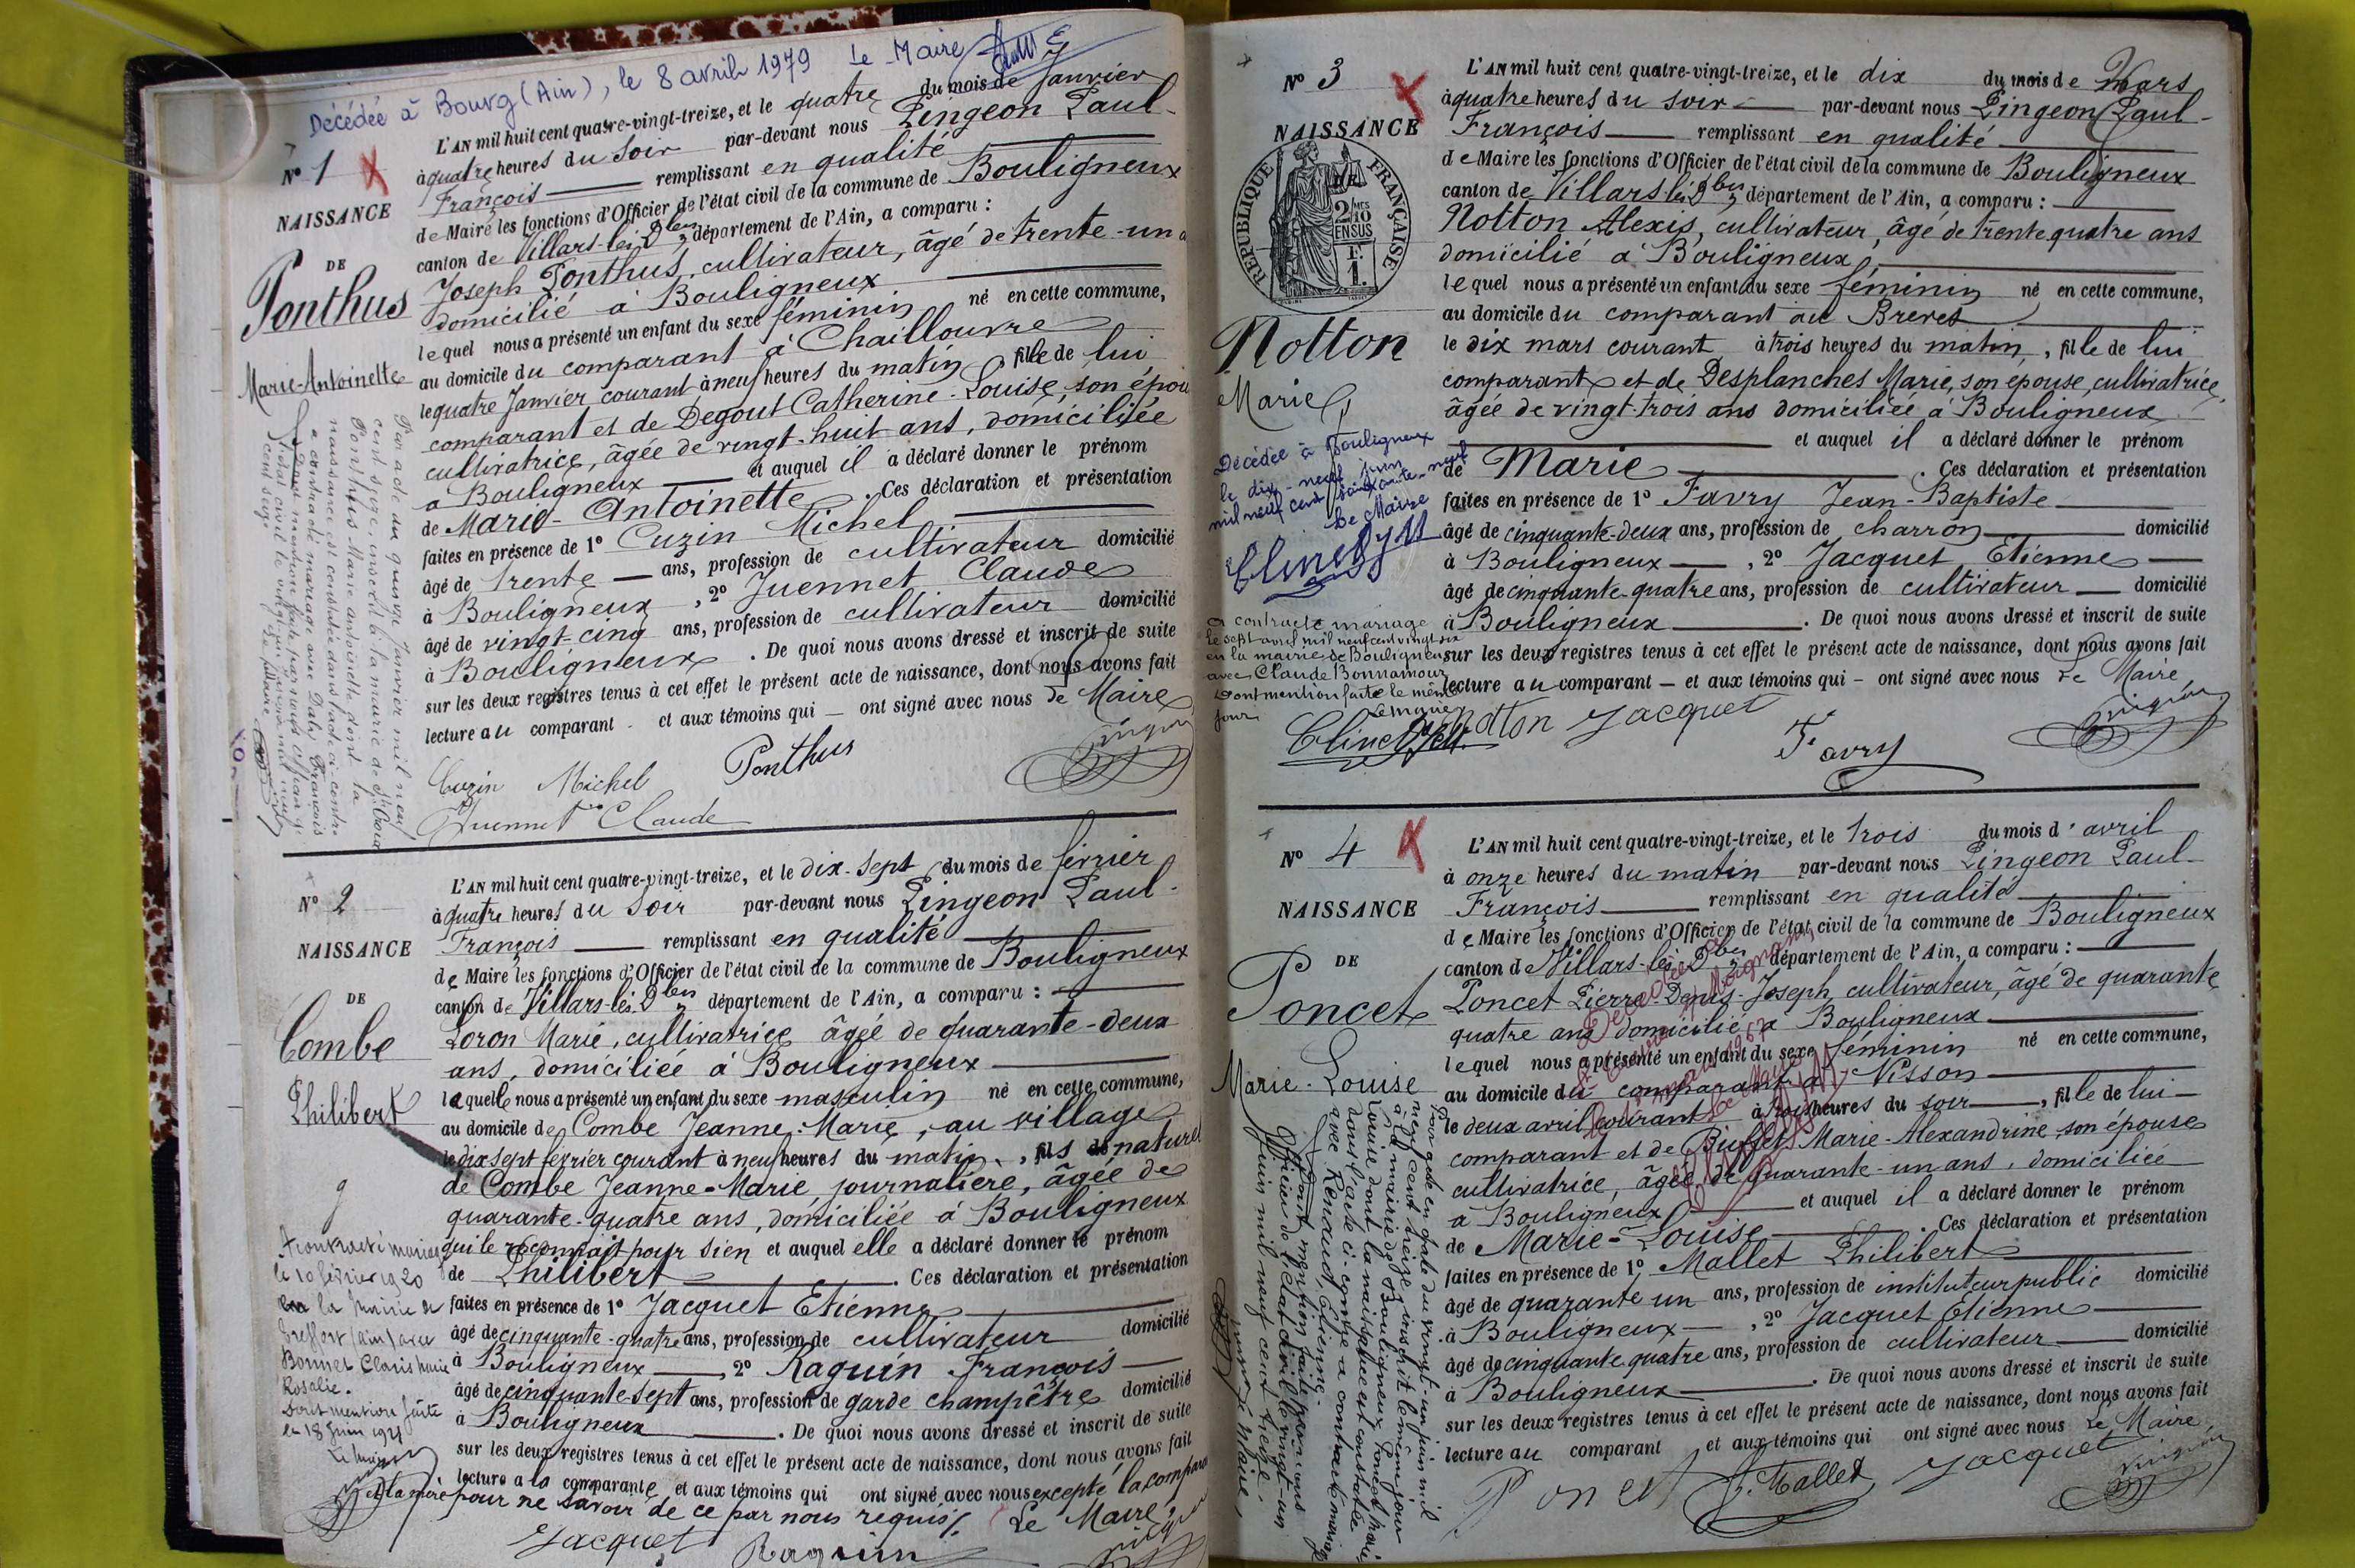 Décédée à Bourg (Ain), le 8 avril 1979 Le Maire
N° 1
NAISSANCE
DE
Ponthus
Marie-Antoinette
L'AN mil huit cent quatre-vingt-treize, et le quatre du mois de Janvier
à quatre heures du soir par-devant nous Pingeon Paul-
François remplissant en qualité
de Maire les fonctions d'Officier de l'état civil de la commune de Bouligneux
canton de Villars-les-Dbes département de l'Ain, a comparu :
Joseph Ponthus, cultivateur, âgé de trente-un
domicilié à Bouligneux
lequel nous a présenté un enfant du sexe féminin né en cette commune,
au domicile du comparant à Chaillouvre
le quatre Janvier courant à neuf heures du matin, fille de lui
comparant et de Degout Catherine-Louise, son épou
cultivatrice, âgée de vingt-huit ans, domiciliée
à Bouligneux et auquel il a déclaré donner le prénom
de Marie-Antoinette. Ces déclaration et présentation
faites en présence de 1° Cuzin Michel
âgé de trente ans, profession de cultivateur domicilié
à Bouligneux, 2° Juennet Claude
âgé de vingt-cinq ans, profession de cultivateur domicilié
à Bouligneux. De quoi nous avons dressé et inscrit de suite
sur les deux registres tenus à cet effet le présent acte de naissance, dont nous avons fait
lecture au comparant et aux témoins qui ont signé avec nous Le Maire
Cuzin Michel Ponthus
Juennet Claude
Par acte du quinze Janvier mil neuf
cent seize, inscrit à la mairie de
Ponthus Marie Antoinette dont la
naissance est constatée dans l'acte ci-contre
a contracté mariage avec François
Dont mention faite par nous
N° 2
NAISSANCE
DE
Combe
Philibert
L'AN mil huit cent quatre-vingt-treize, et le dix-sept du mois de février
à quatre heures du soir par-devant nous Pingeon Paul-
François remplissant en qualité
de Maire les fonctions d'Officier de l'état civil de la commune de Bouligneux
canton de Villars-les-Dbes département de l'Ain, a comparu :
Loron Marie, cultivatrice âgée de quarante-deux
ans, domiciliée à Bouligneux
laquelle nous a présenté un enfant du sexe masculin né en cette commune,
au domicile de Combe Jeanne-Marie, au village
le dix sept février courant à neuf heures du matin, fils naturel
de Combe Jeanne-Marie, journalière, âgée de
quarante-quatre ans, domiciliée à Bouligneux
qui le reconnait pour sien et auquel elle a déclaré donner le prénom
de Philibert. Ces déclaration et présentation
faites en présence de 1° Jacquet Etienne
âgé de cinquante-quatre ans, profession de cultivateur domicilié
à Bouligneux, 2° Raquin François
âgé de cinquante-sept ans, profession de garde champêtre domicilié
à Bouligneux. De quoi nous avons dressé et inscrit de suite
sur les deux registres tenus à cet effet le présent acte de naissance, dont nous avons fait
lecture a la comparante et aux témoins qui ont signé avec nous excepté la compar
pour ne savoir de ce par nous requis. Le Maire,
Jacquet Raquin
A contracté mariage
le 10 février 1920
la mairie de
Bonnet Claris Marie
Rosalie.
Dont mention faite
le 18 Juin 1921
N° 3
NAISSANCE
RÉPUBLIQUE FRANÇAISE
Notton
Marie
L'AN mil huit cent quatre-vingt-treize, et le dix du mois de Mars
à quatre heures du soir par-devant nous Pingeon Paul-
François remplissant en qualité
de Maire les fonctions d'Officier de l'état civil de la commune de Bouligneux
canton de Villars-les-Dbes département de l'Ain, a comparu :
Notton Alexis, cultivateur, âgé de trente quatre ans
domicilié à Bouligneux,
lequel nous a présenté un enfant du sexe féminin né en cette commune,
au domicile du comparant au Breves
le dix mars courant à trois heures du matin, fille de lui
comparant et de Desplanches Marie, son épouse, cultivatrice,
âgée de vingt-trois ans domiciliée à Bouligneux
et auquel il a déclaré donner le prénom
de Marie. Ces déclaration et présentation
faites en présence de 1° Favry Jean-Baptiste
âgé de cinquante-deux ans, profession de charron domicilié
à Bouligneux, 2° Jacquet Etienne
âgé de cinquante-quatre ans, profession de cultivateur domicilié
à Bouligneux. De quoi nous avons dressé et inscrit de suite
sur les deux registres tenus à cet effet le présent acte de naissance, dont nous avons fait
lecture au comparant et aux témoins qui ont signé avec nous Le Maire
Notton Jacquet
Favry
Décédée à Bouligneux
le dix-neuf juin
mil neuf cent soixante-neuf
Le Maire
a contracté mariage
le sept avril mil neuf cent vingt six
en la mairie de Bouligneux
avec Claude Bonnamour
Dont mention faite le même
jour
Le maire
N° 4
NAISSANCE
DE
Poncet
Marie-Louise
L'AN mil huit cent quatre-vingt-treize, et le trois du mois d'avril
à onze heures du matin par-devant nous Pingeon Paul-
François remplissant en qualité
de Maire les fonctions d'Officier de l'état civil de la commune de Bouligneux
canton de Villars-les-Dbes département de l'Ain, a comparu :
Poncet Pierre-Denis-Joseph, cultivateur, âgé de quarante
quatre ans domicilié à Bouligneux
lequel nous a présenté un enfant du sexe féminin né en cette commune,
au domicile du comparant à Nisson
le deux avril courant à trois heures du soir, fille de lui
comparant et de Buffet Marie-Alexandrine, son épouse
cultivatrice, âgée de quarante-un ans, domiciliée
à Bouligneux et auquel il a déclaré donner le prénom
de Marie-Louise. Ces déclaration et présentation
faites en présence de 1° Mallet Philibert
âgé de quarante un ans, profession de instituteur public domicilié
à Bouligneux, 2° Jacquet Etienne
âgé de cinquante quatre ans, profession de cultivateur domicilié
à Bouligneux. De quoi nous avons dressé et inscrit de suite
sur les deux registres tenus à cet effet le présent acte de naissance, dont nous avons fait
lecture au comparant et aux témoins qui ont signé avec nous Le Maire
Poncet Mallet Jacquet
Par acte en date du vingt-un juin mil
neuf cent treize, inscrit le même jour
à la mairie de Bouligneux, Poncet Marie-
Louise dont la naissance est constatée
dans l'acte ci-contre a contracté mariage
avec Renaud Etienne.
Dont mention faite par nous
Officier de l'état civil le vingt-un
Juin mil neuf cent treize.